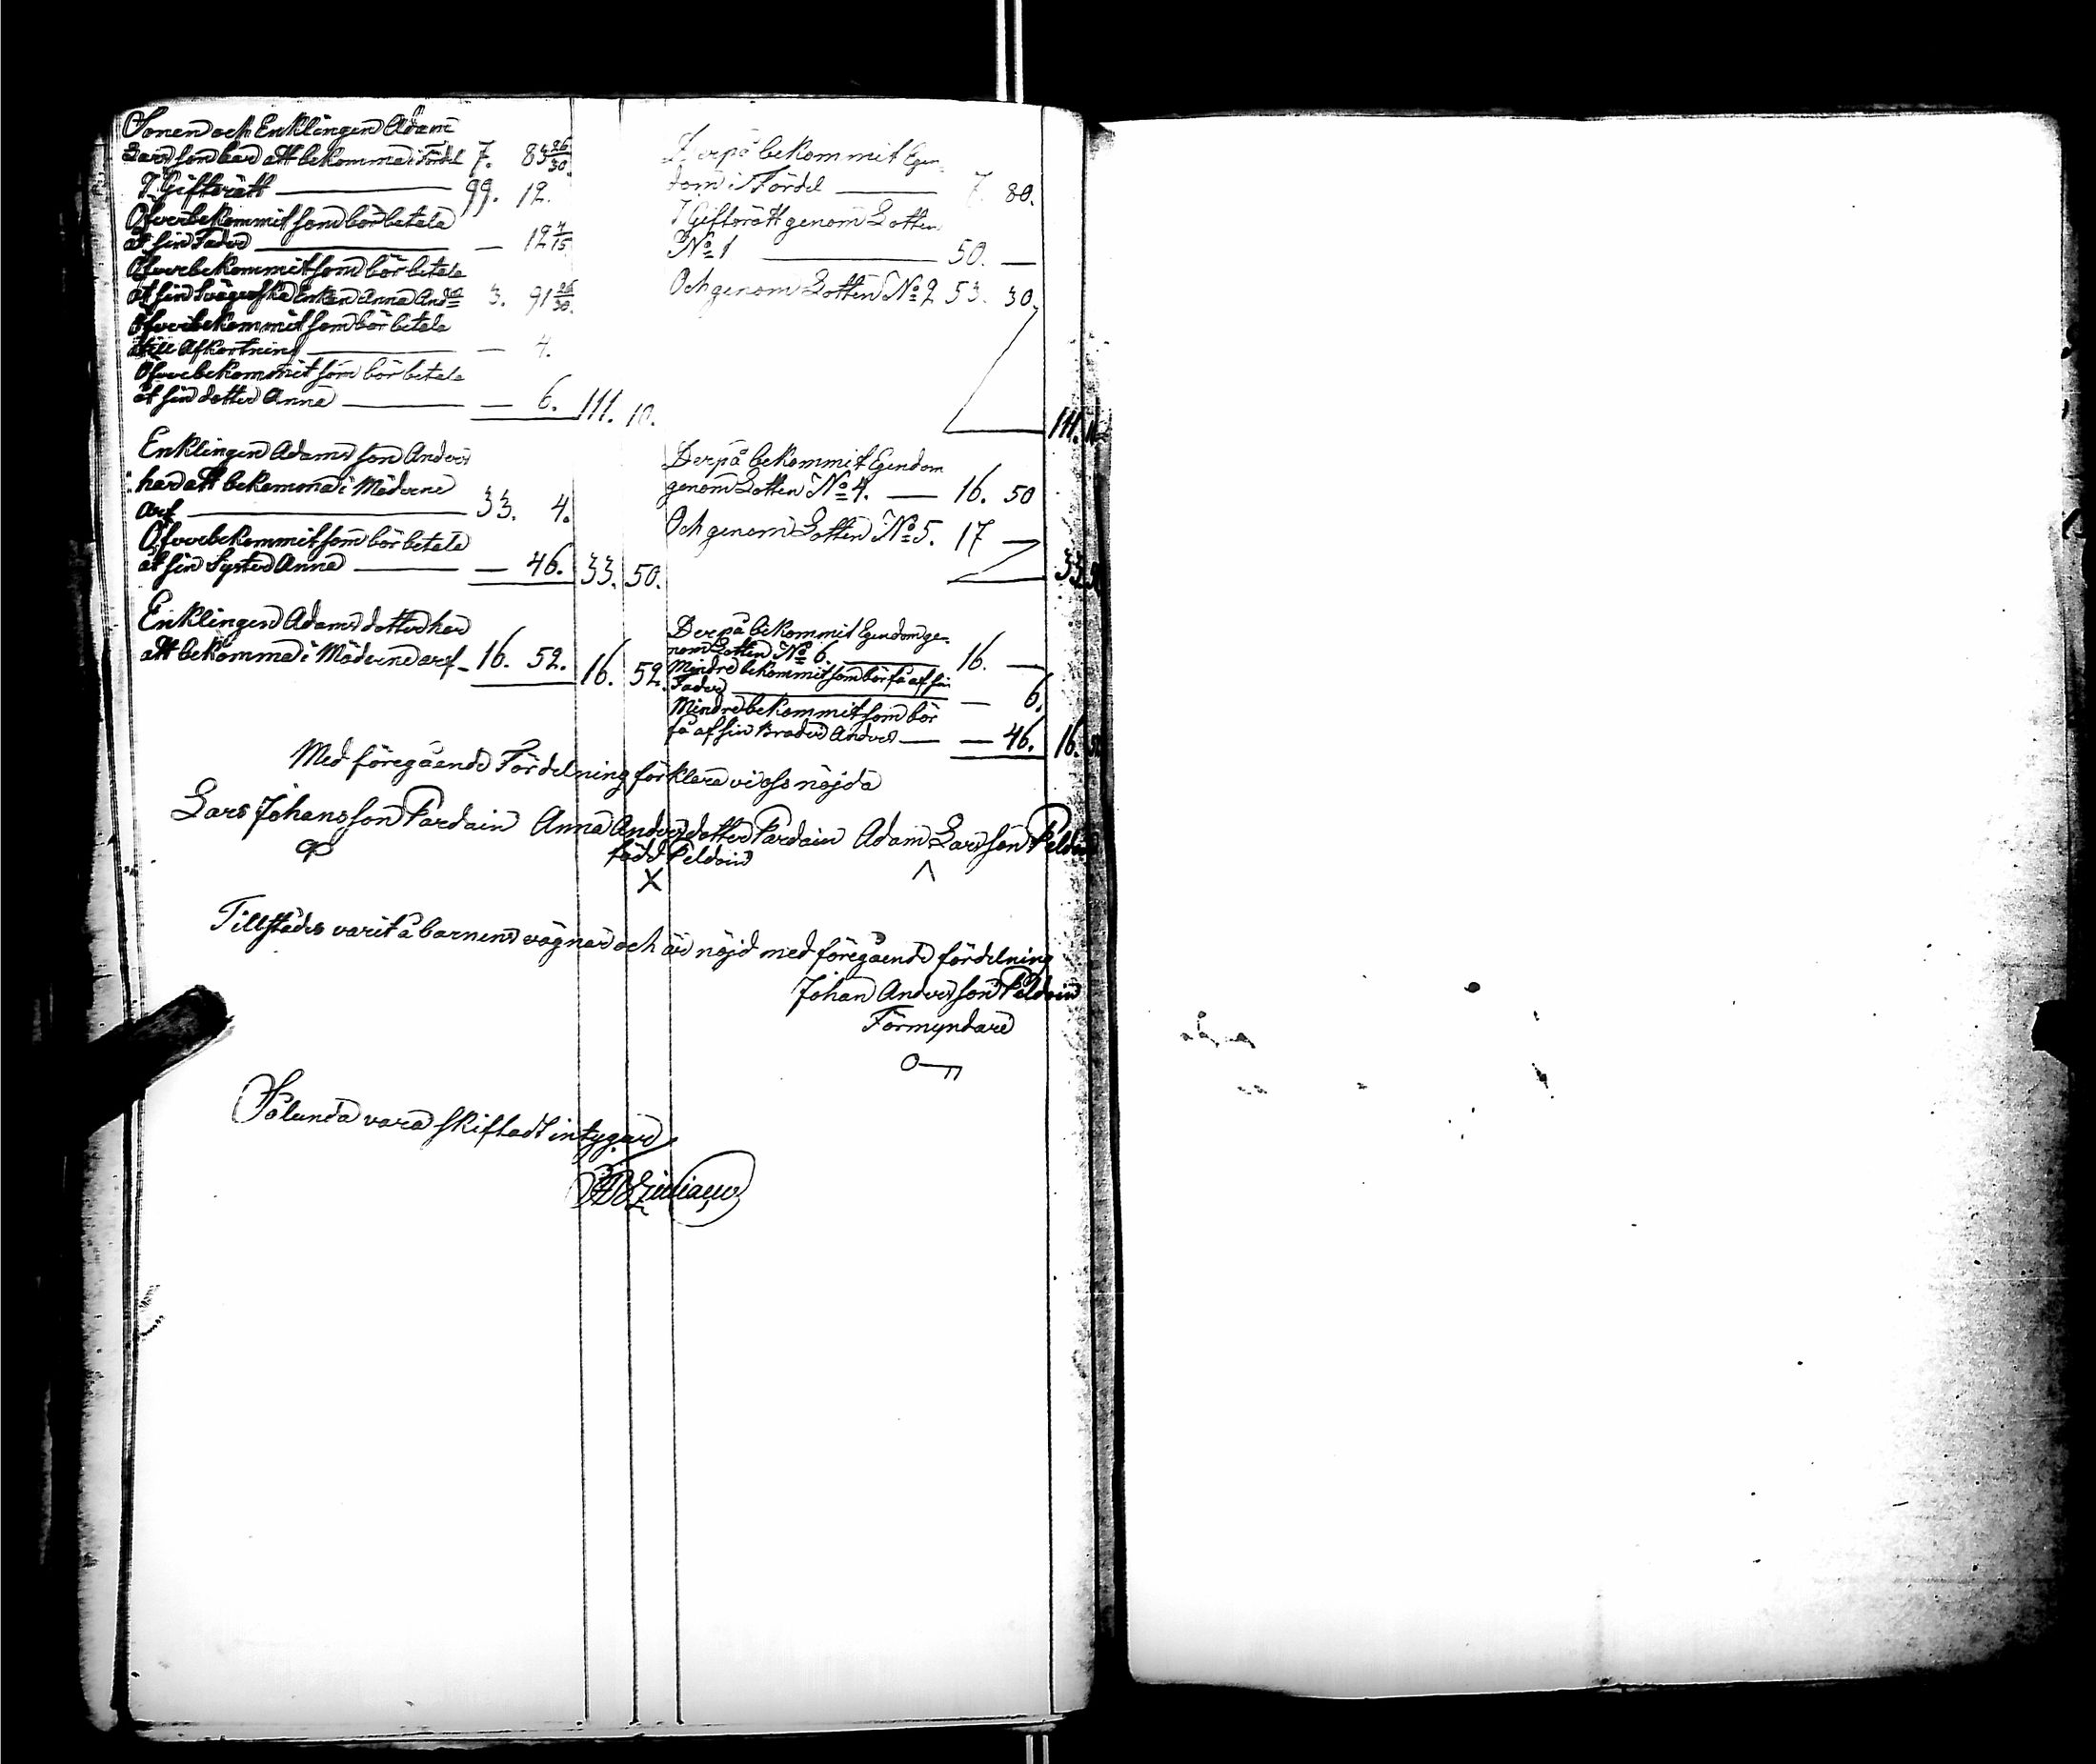 Sonen och Enklingen Adam
Larsson har att bekomma i Fördel 7. 83 26/30.
I Giftorätt 99. 12.
Öfverbekommit som bör betala
åt sin Fader — 12 4/15.
Öfverbekommit som bör betala
åt sin Svägerska Enkan Anna And:dr 3. 91 26/30.
Öfverbekommit som bör betala
till Afkortning — 4.
Öfverbekommit som bör betala
åt sin dotter Anna — 6. 111. 10.
Enklingen Adams son Anders
har att bekomma i Möderne
arf 33. 4.
Öfverbekommit som bör betala
åt sin Syster Anna — 46. 33. 50.
Enklingen Adams dotter har
att bekomma i Möderne arf 16. 52. 16. 52.
Derpå bekommit Egen-
dom i Fördel 7. 80.
I Giftorätt genom Lotten
No 1 50. —
Och genom Lotten No 2 53. 30.
111. 10
Derpå bekommit Egendom
genom Lotten No 4. — 16. 50
Och genom Lotten No 5. 17 —
33. 50
Derpå bekommit Egendom ge-
nom Lotten No 6. 16. —
Mindre bekommit som bör få af sin
Fader — 6.
Mindre bekommit som bör
få af sin Broder Anders — 46. 16. 52
Med föregående Fördelning förklara vi oss nöjda
Lars Johansson Pardain Anna Andersdotter Pardain Adam Larsson Peldoin
född Peldoin
X
Tillstädes varit å barnens vägnar och är nöjd med föregående fördelning
Johan Andersson Peldoin
Förmyndare
Sålunda vara skiftadt intygar